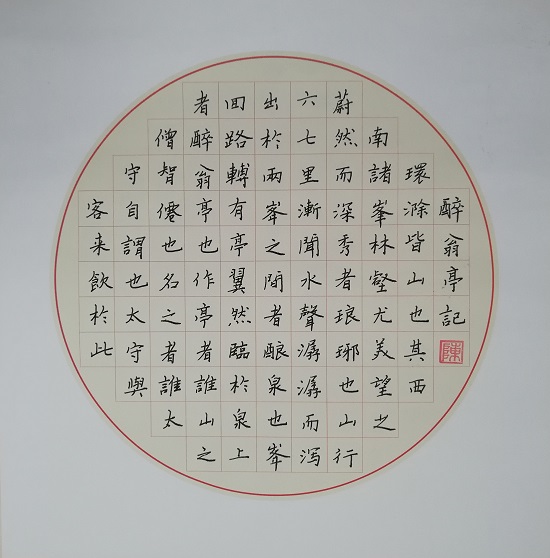 醉翁亭記
陳
環滁皆山也其西
南諸峯林壑尤美望之
蔚然而深秀者琅琊也山行
六七里漸聞水聲潺潺而泻
出於兩峯之間者酿泉也峯
回路轉有亭翼然臨於泉上
者醉翁亭也作亭者誰山之
僧智僊也名之者誰太
守自謂也太守與
客來飲於此